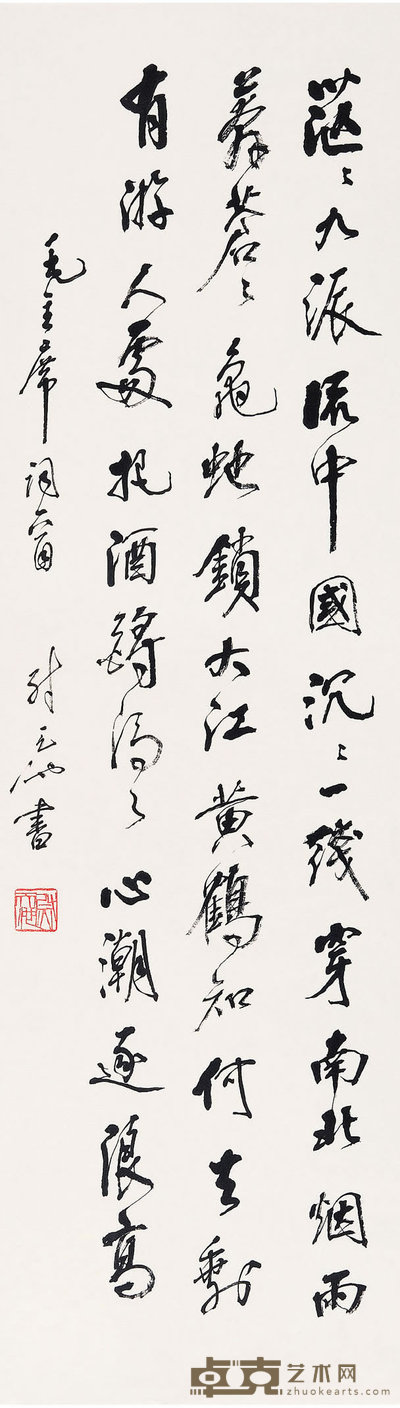 茫〻九派流中國沉〻一綫穿南北烟雨
莽蒼〻龜蛇鎖大江黄鶴知何去剩
有游人處把酒酹滔〻心潮逐浪高
毛主席詞一首 尉天池書
卓克艺术网
zhuokearts.com